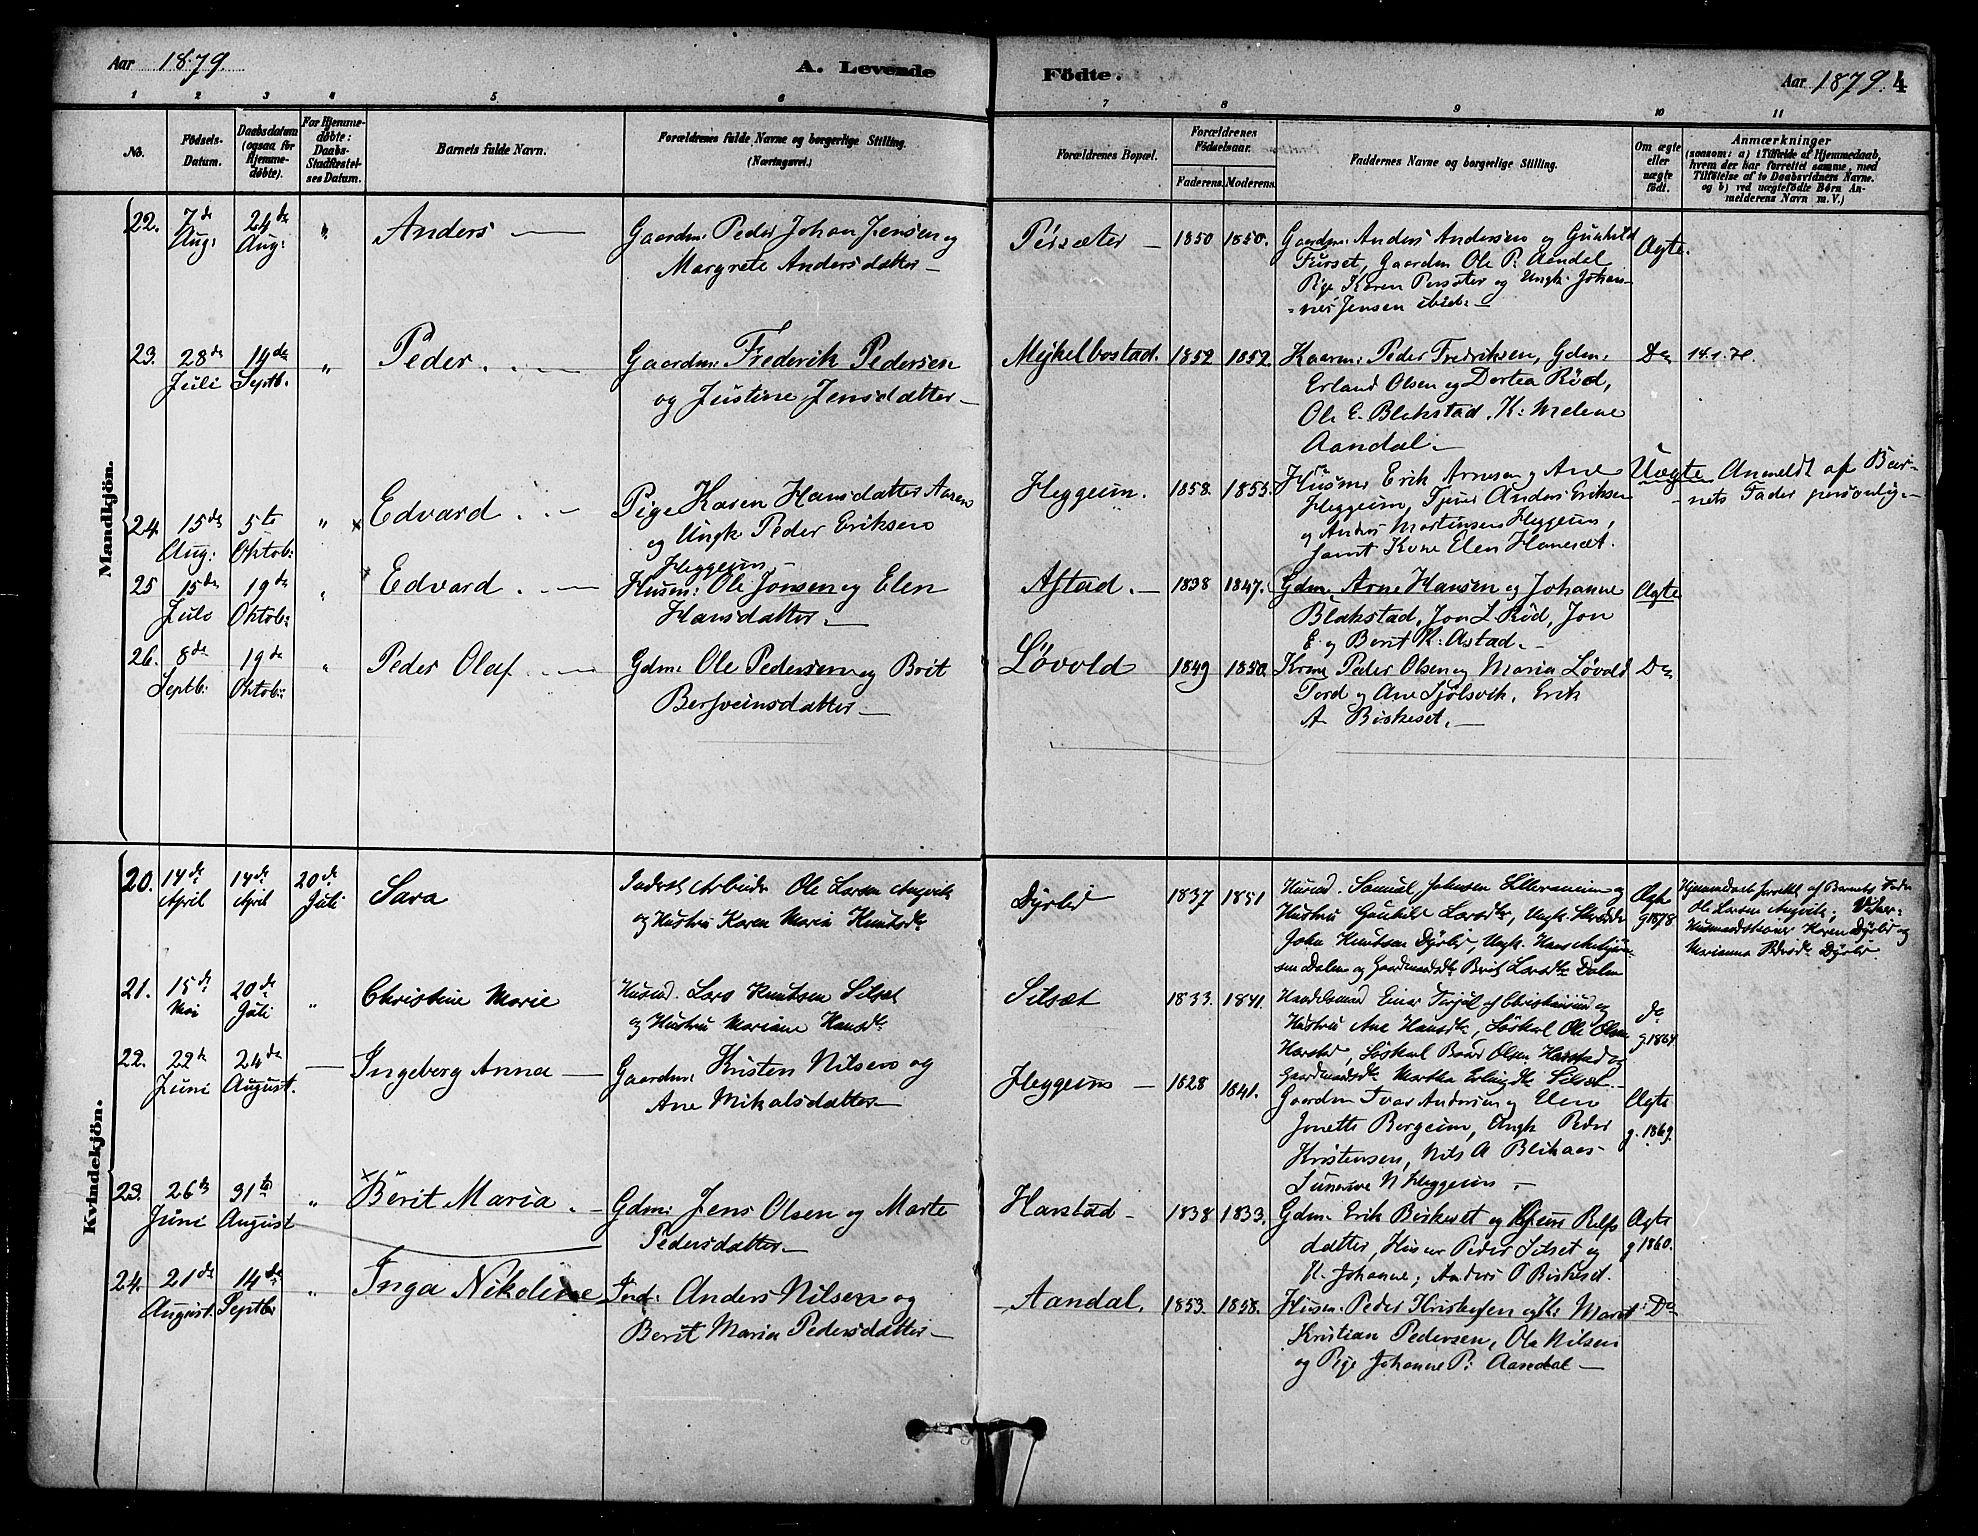 Aar 1879. A. Levende Födte. Aar 1879. 4
1 2 3 4 5 6 7 8 9 10 11
No.
Födsels-
Datum.
Daabsdatum
(ogsaa for
Hjemme-
døbte).
For Hjemme-
døbte:
Daabs-
Stadfæstel-
ses Datum.
Barnets fulde Navn.
Forældrenes fulde Navne og borgerlige Stilling.
(Næringsvei.)
Forældrenes Bopæl.
Forældrenes
Födselsaar.
Faderens. Moderens.
Faddernes Navne og borgerlige Stilling.
Om ægte
eller
uægte
født.
Anmærkninger
(saasom: a) i Tilfælde af Hjemmedaab,
hvem der har forrettet samme, med
Tilføielse af to Daabsvidners Navne,
og b) ved uægtefødte Børn An-
melderens Navn m. V.)
Mandkjön.
22. 7de Aug: 24de Aug: " Anders
Gaardm: Peder Johan Jensen og
Margrete Andersdatter
Persæter 1850 1850.
Gaardm: Anders Andersen og Gunhild
Furset, Gaardm Ole P: Aandal
Pige Karen Persæter og Ungk: Johan-
nes Jensen ibid:
Ægte.
23. 28de Juli 14de Septb. " Peder
Gaardm: Frederik Pedersen
og Justine Jensdatter
Mejkelbostad. 1852 1852.
Kaarm: Peder Fredriksen, Gdm:
Erland Olsen og Dortea Röd,
Ole E. Blakstad, K: Malene
Aandal
Do
24. 15de Aug: 5te Oktob: " Edvard
Pige Karen Hansdatter Aasen
og Ungk: Peder Eriksen
Heggeim
Heggeim. 1858. 1853.
Husm: Erik Arnesen og Ane
Heggeim, Tjener Anders Eriksen
og Anders Mortensen Heggeim,
samt Kone Elen Hanesæt.
Uægte
Anmeldt af Bar-
nets Fader personlig.
25 15de Juli 19de Oktob: " Edvard
Husm: Ole Jonsen og Elen
Hansdatter
Astad. 1838 1847.
Gdm: Arne Hansen og Johanne
Blakstad, Jon L Röd, Jon
E. og Berit K: Astad.
Ægte
26. 8de Septb: 19de Oktob: " Peder Olaf
Gdm: Ole Pedersen og Brit
Bersveinsdatter
Løvold 1849 1850.
Peder Olsen og Maria Løvold
Tord og Ane Sjölsvik, Erik
A. Birkeset.
Do
Kvindekjön.
20. 14de April 14de April 20de Juli Sara
Inderst Arbeider Ole Larsen Angvik
og Hustru Karen Maria Knutsdt
Dyrlid 1837 1851
Husmd. Samuel Johnsen Lilleraneim og
Hustru Gunhild Larsdtr, Ungk. Skrædder
John Knutsen Dyrlid, Ungk. Hans
Dalen og Gaardmandsdt Berit Larsdtr Dalen
Ægte
g 1878
Hjemmedøbt forrettet af Barnets Fader
Ole Larsen Angvik; Vidner:
Husmandskoner Karen Dyrlid og
Marianna Pedersdt Dyrlid.
21. 15de Mai 20de Juli " Christine Marie
Husmd. Lars Knutsen Silset
og Hustru Mariane Hansdt
Silsæt 1833. 1841.
Handelsmand Einar af Christiansund og
Hustru Ane Hansdt, Löskarl Ole Olsen
Harstad, Löskarl Baar Olsen Harstad og
Gaardmandsdt Martha Erlingdt Silsæt.
do
g. 1864
22. 22de Juni 24de August. Ingeborg Anna
Gaardm: Kristen Nilsen og
Ane Mikalsdatter
Heggeim 1828 1841.
Gaardm Ivar Andersen og Elen
Jonette Bergeim, Ungk Peder
Kristensen, Nils A Blikaas
N Heggeim
Ægte
g. 1869.
23. 26de Juni 31te August " Berit Maria
Gdm: Jens Olsen og Marte
Pedersdatter
Harstad 1838 1833.
Gdm. Erik Birkeset og
datter, Husm Peder Silset og
K. Johanne, Anders O Birkeset.
Ægte
g 1860.
24. 21de August. 14de Septb: " Inga Nikoline
Ind: Anders Nilsen og
Berit Maria Pedersdatter
Aandal. 1853. 1858.
Husm: Peder Kristofsen og K: Marit
Kristian Pedersen, Ola Nilsen
og Pige Johanne P: Aandal
Do